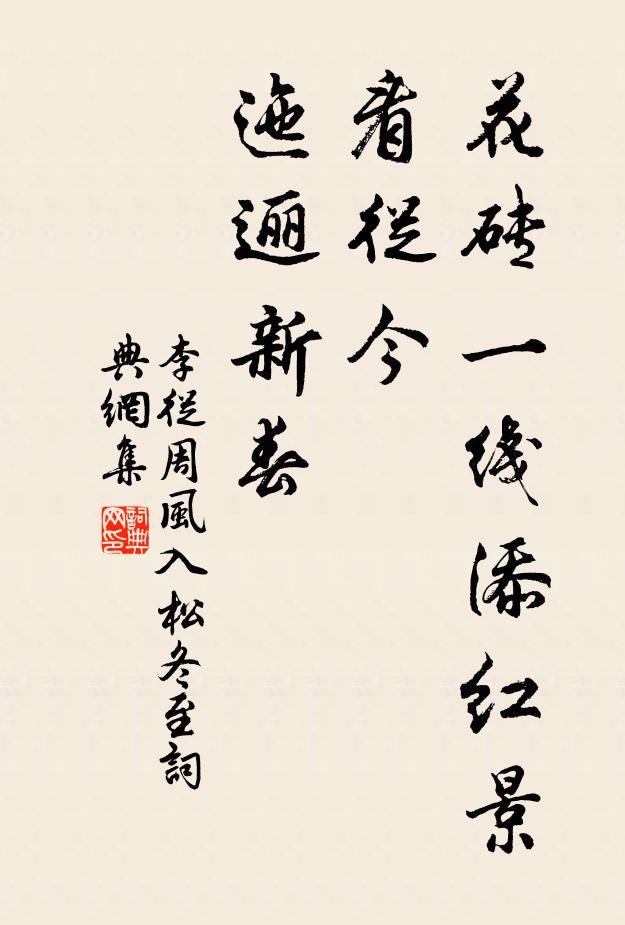 花砖一线添红景
看從今
迤逦新春
李從周風入松冬至詞
典網集
詞典网印